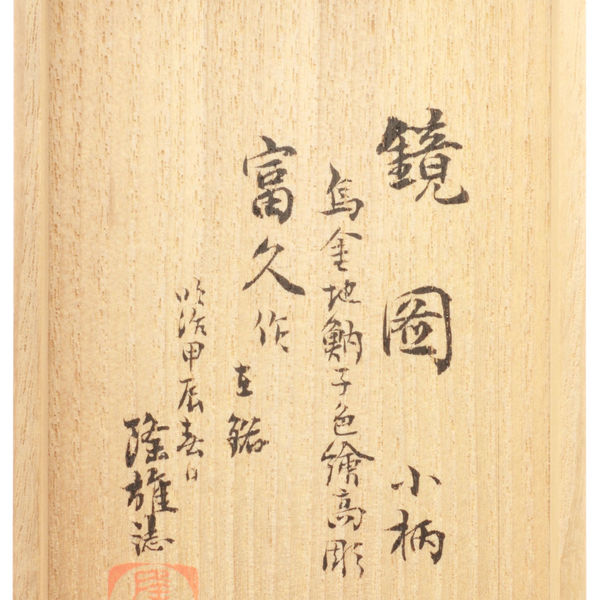 鏡圖 小柄
烏金地魶子色繪高彫
富久作 在銘
明治甲辰春日
隆雄誌